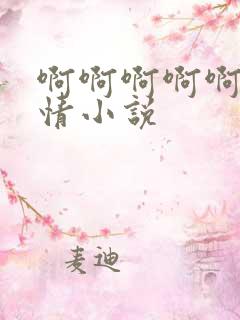 啊啊啊啊啊
情小说
麦迪